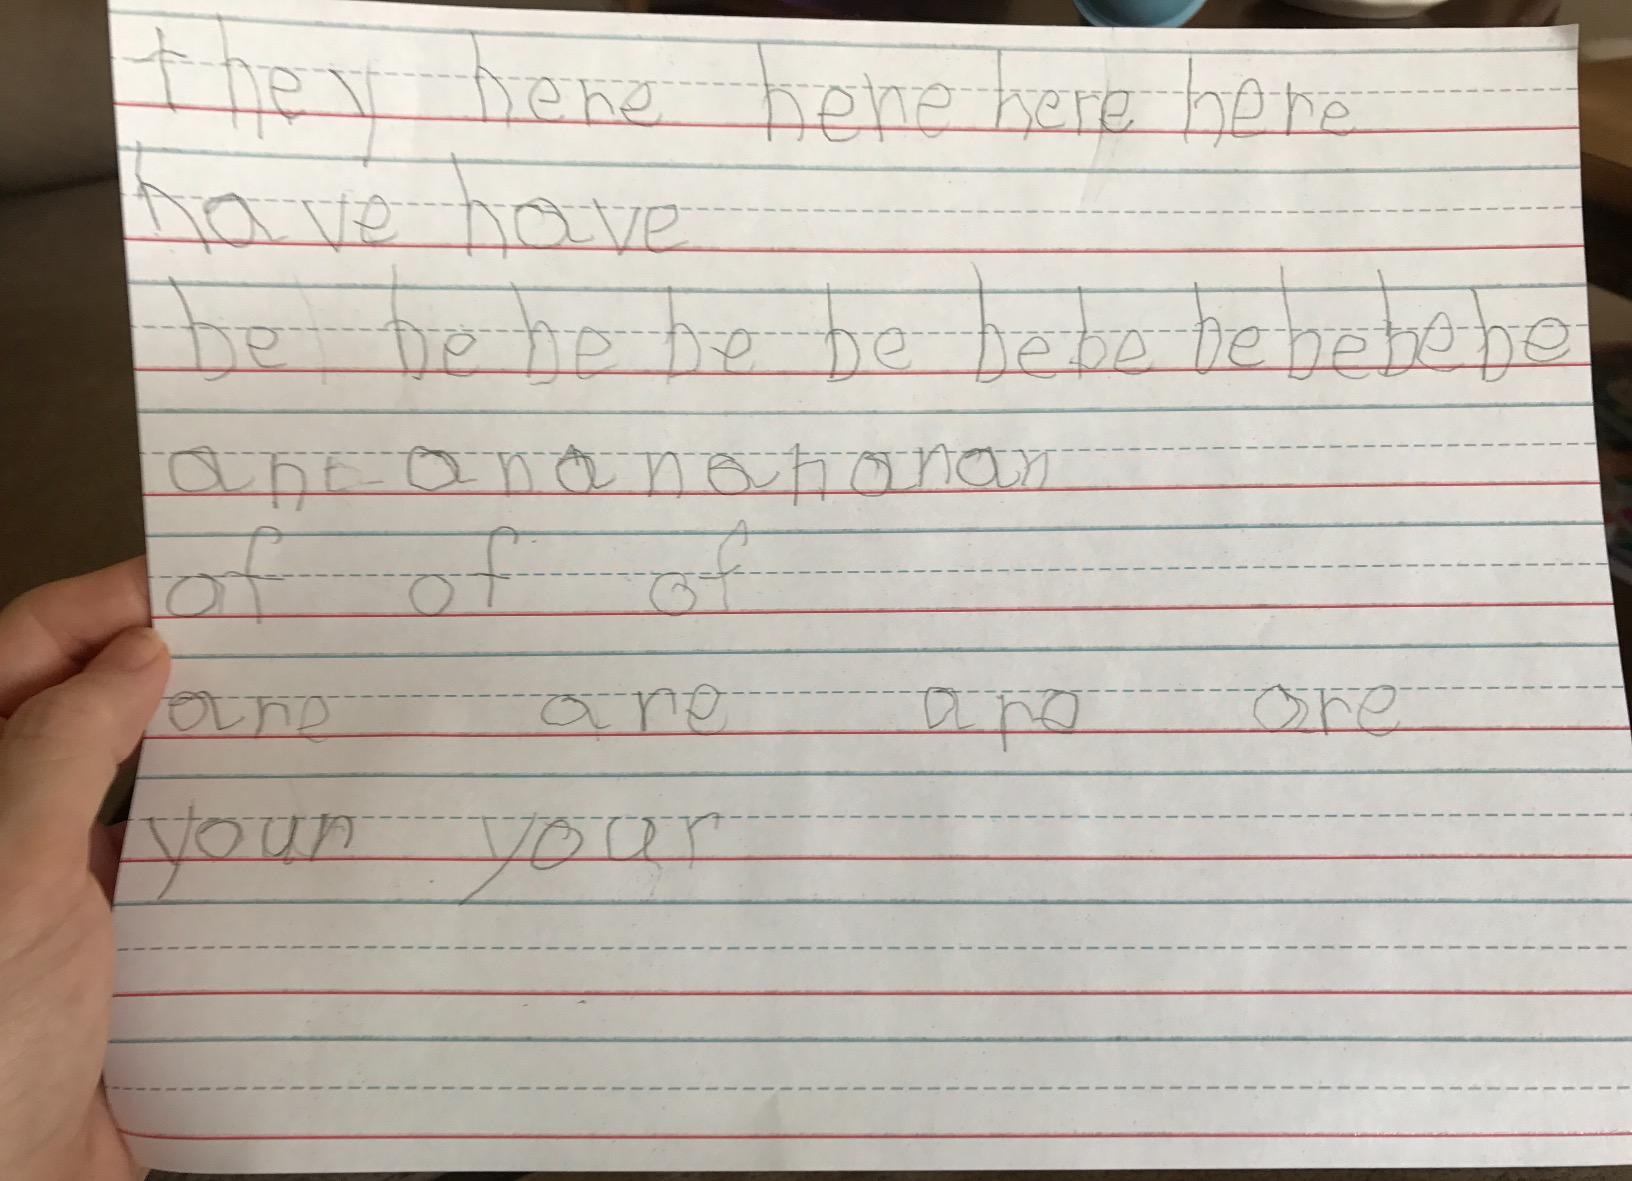 they here here here here
have have
be be be be be be be be be be be
an an an an an an
of of of
are are are are
your your